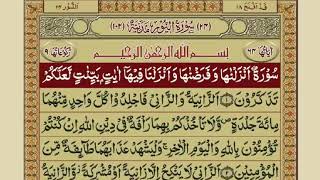 قَدْ اَفْلَحَ ١٨
اَلنُّوْر ٢٤
اٰيَاتُهَا ٦٤
(٢٤) سُوْرَةُ النُّوْرِ مَدَنِيَّةٌ (١٠٢)
رُكُوْعَاتُهَا ٩
بِسْمِ اللّٰهِ الرَّحْمٰنِ الرَّحِيْمِ
سُوْرَةٌ اَنْزَلْنٰهَا وَفَرَضْنٰهَا وَاَنْزَلْنَا فِيْهَاۤ اٰيٰتٍۭ بَيِّنٰتٍ لَّعَلَّكُمْ
تَذَكَّرُوْنَ ① اَلزَّانِيَةُ وَالزَّانِيْ فَاجْلِدُوْا كُلَّ وَاحِدٍ مِّنْهُمَا
مِائَةَ جَلْدَةٍ ۪ وَّلَا تَاْخُذْكُمْ بِهِمَا رَاْفَةٌ فِيْ دِيْنِ اللّٰهِ اِنْ كُنْتُمْ
تُؤْمِنُوْنَ بِاللّٰهِ وَالْيَوْمِ الْاٰخِرِ ۚ وَلْيَشْهَدْ عَذَابَهُمَا طَآئِفَةٌ مِّنَ
الْمُؤْمِنِيْنَ ② اَلزَّانِيْ لَا يَنْكِحُ اِلَّا زَانِيَةً اَوْ مُشْرِكَةً ۫ وَّ